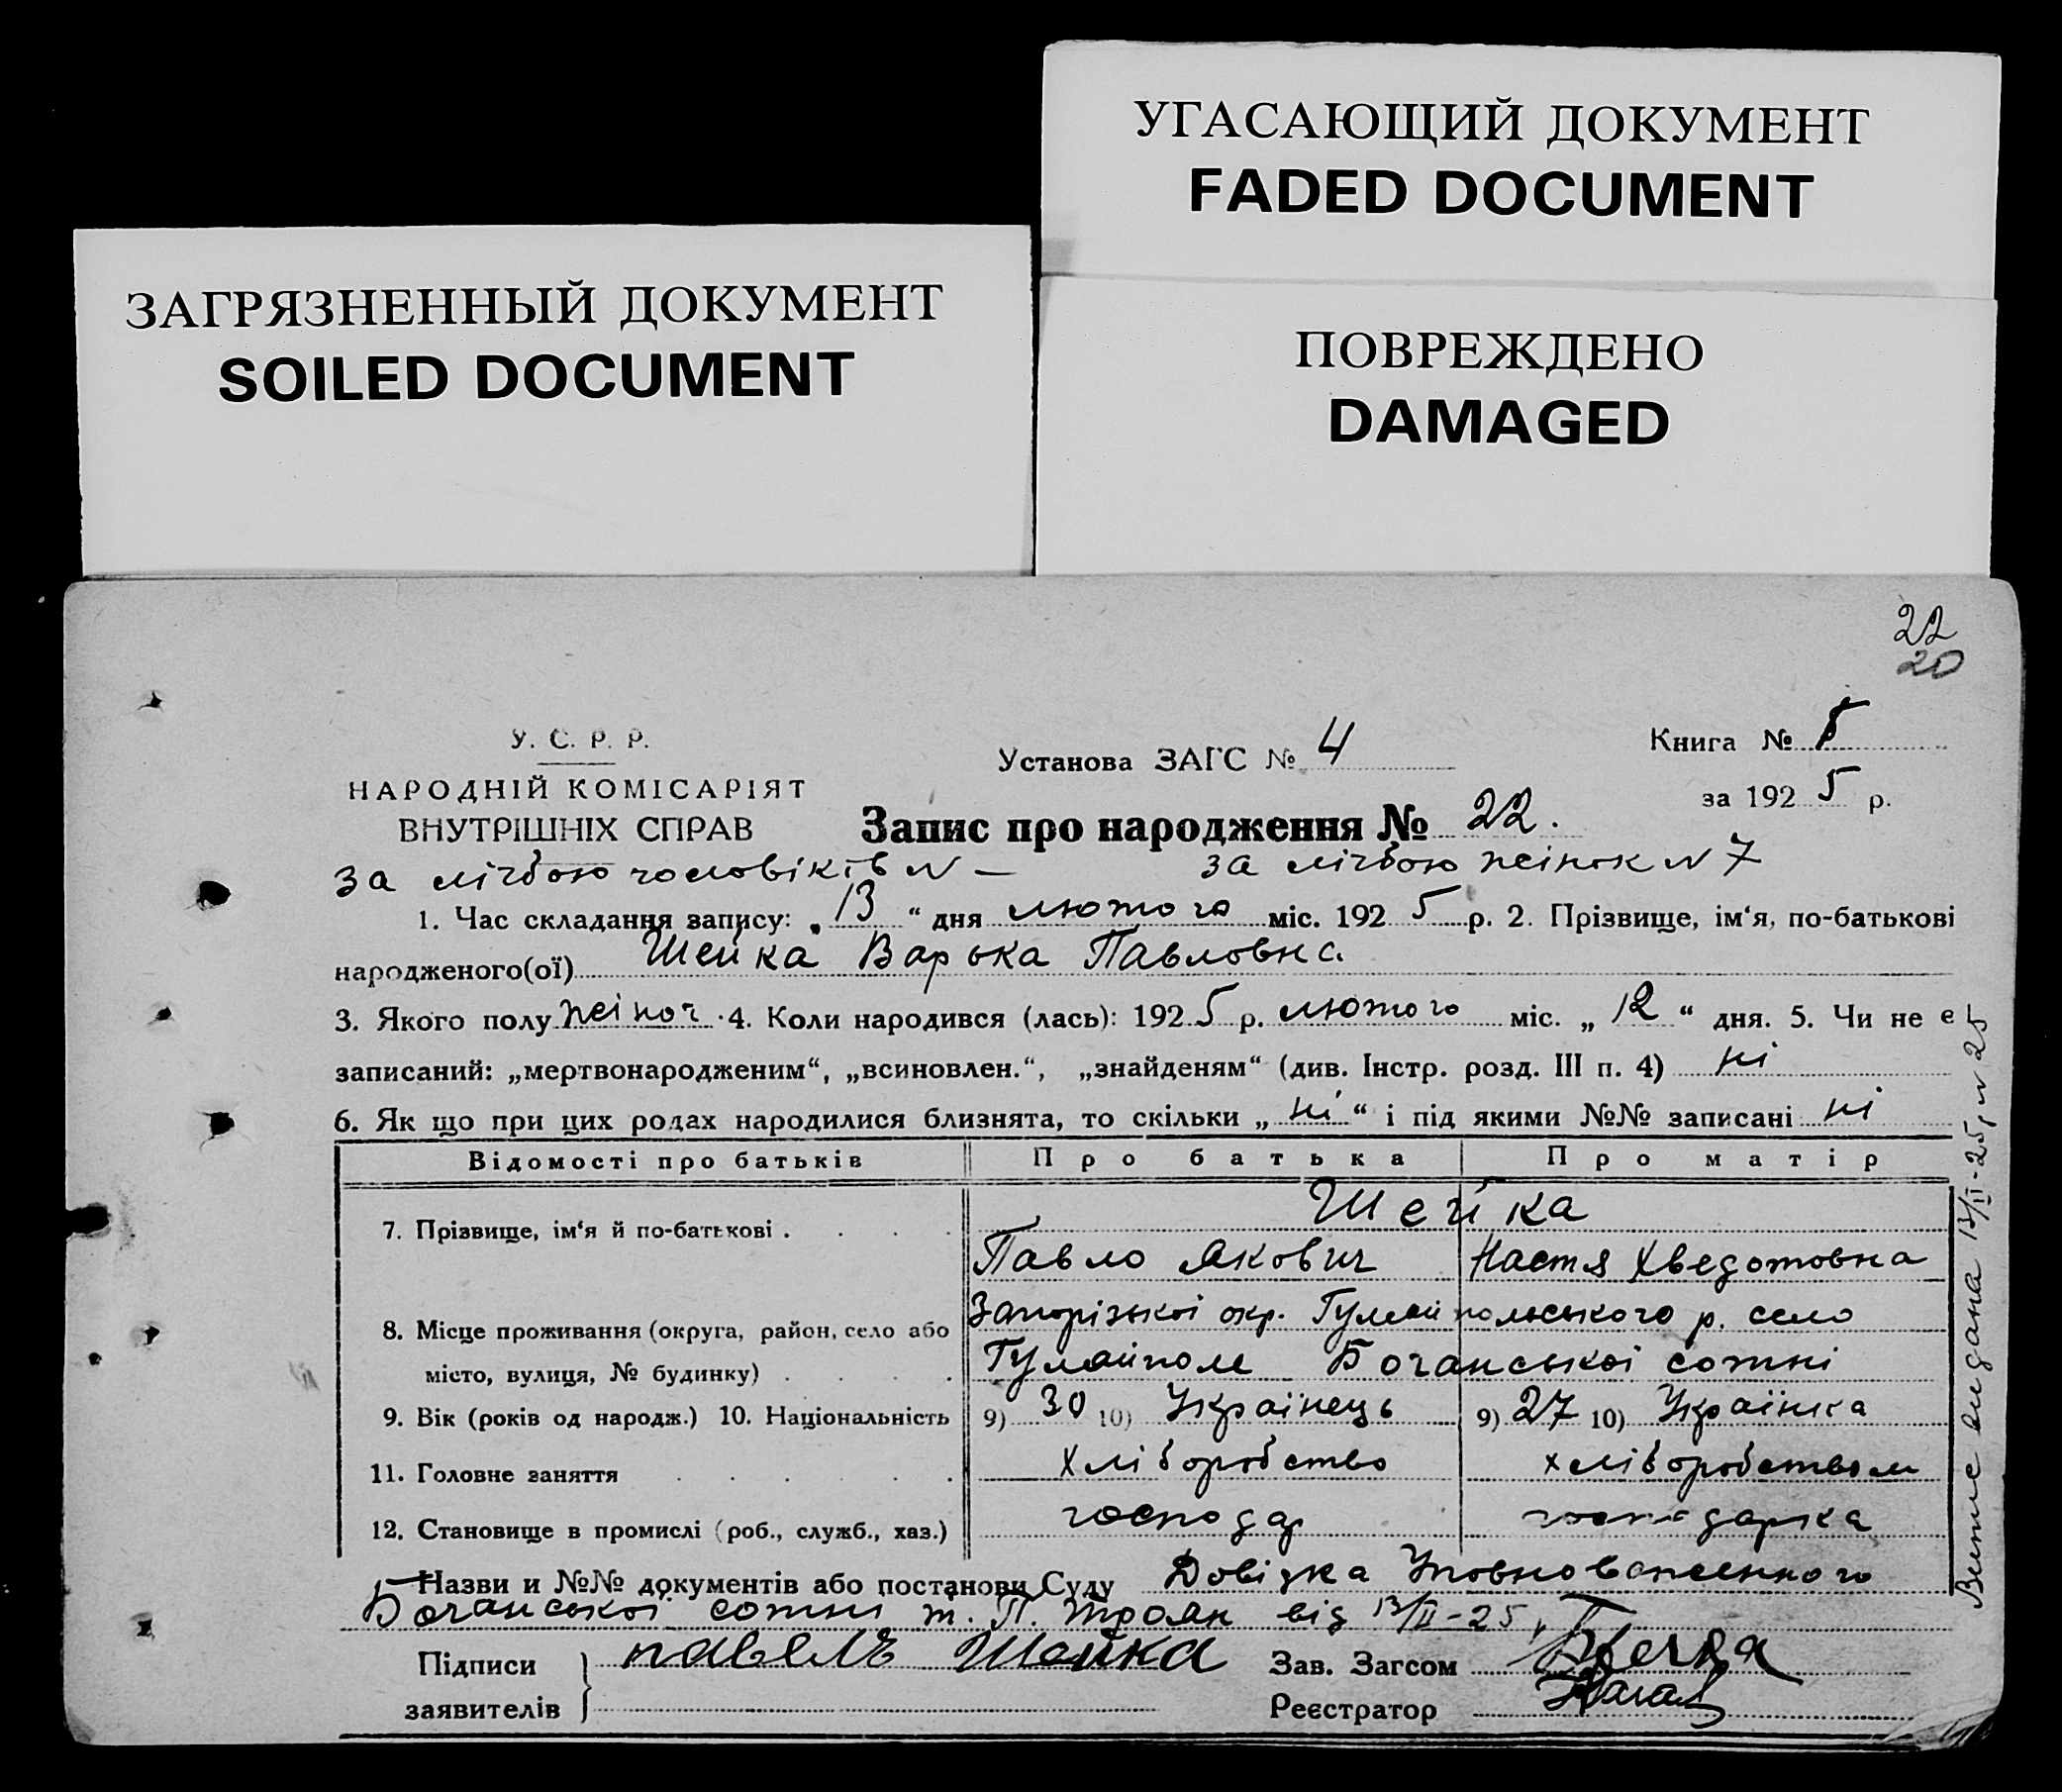 УГАСАЮЩИЙ ДОКУМЕНТ
FADED DOCUMENT
ЗАГРЯЗНЕННЫЙ ДОКУМЕНТ
SOILED DOCUMENT
ПОВРЕЖДЕНО
DAMAGED
22
20
У. С. Р. Р.
НАРОДНІЙ КОМІСАРІЯТ
ВНУТРІШНІХ СПРАВ
Установа ЗАГС № 4
Книга № 5
за 1925 р.
Запис про народження № 22.
за лічбою чоловіків N — за лічбою жінок N 7
1. Час складання запису: „13“ дня лютого міс. 1925 р. 2. Прізвище, ім‘я, по-батькові
народженого(ої) Шейка Варька Павловна
3. Якого полу жіноч. 4. Коли народився (лась): 1925 р. лютого міс. „12“ дня. 5. Чи не є
записаний: „мертвонародженим“, „всиновлен.“, „знайденям“ (див. Інстр. розд. III п. 4) ні
6. Як що при цих родах народилися близнята, то скільки „ні“ і під якими №№ записані ні
Відомості про батьків Про батька Про матір
7. Прізвище, ім‘я й по-батькові . . . . Шейка
Павло Якович Настя Хведотовна
8. Місце проживання (округа, район, село або Запорізької окр. Гуляйпольського р. село
місто, вулиця, № будинку) . . . . Гуляйполе Бочанської сотні
9. Вік (років од народж.) 10. Національність 9) 30 10) Українець 9) 27 10) Українка
11. Головне заняття . . . . . Хліборобство хліборобством
12. Становище в промислі (роб., служб., хаз.) господар господарка
Назви и №№ документів або постанови Суду Довідка Уповноваженного
Бочанської сотні т. П. Троян від 13/II-25
Підписи заявителів } павелъ Шейка
Зав. Загсом
Реєстратор
Витис видана 13/II-25, N 25